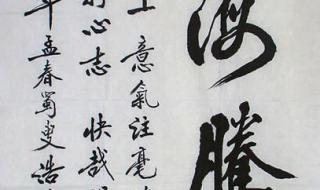 海騰
意氣注毫
心志快哉
年孟春蜀叟浩